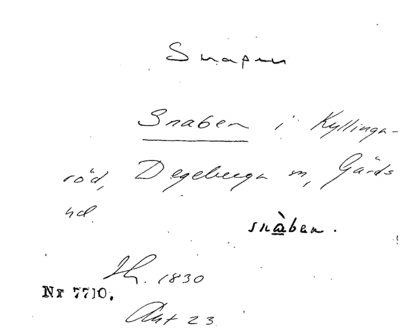 Snapen
Snaben i Kyllinga-
röd, Degeberga sn, Gärds
hd.
snàben.
Jh. 1830
Nr 7710.
Akt 23